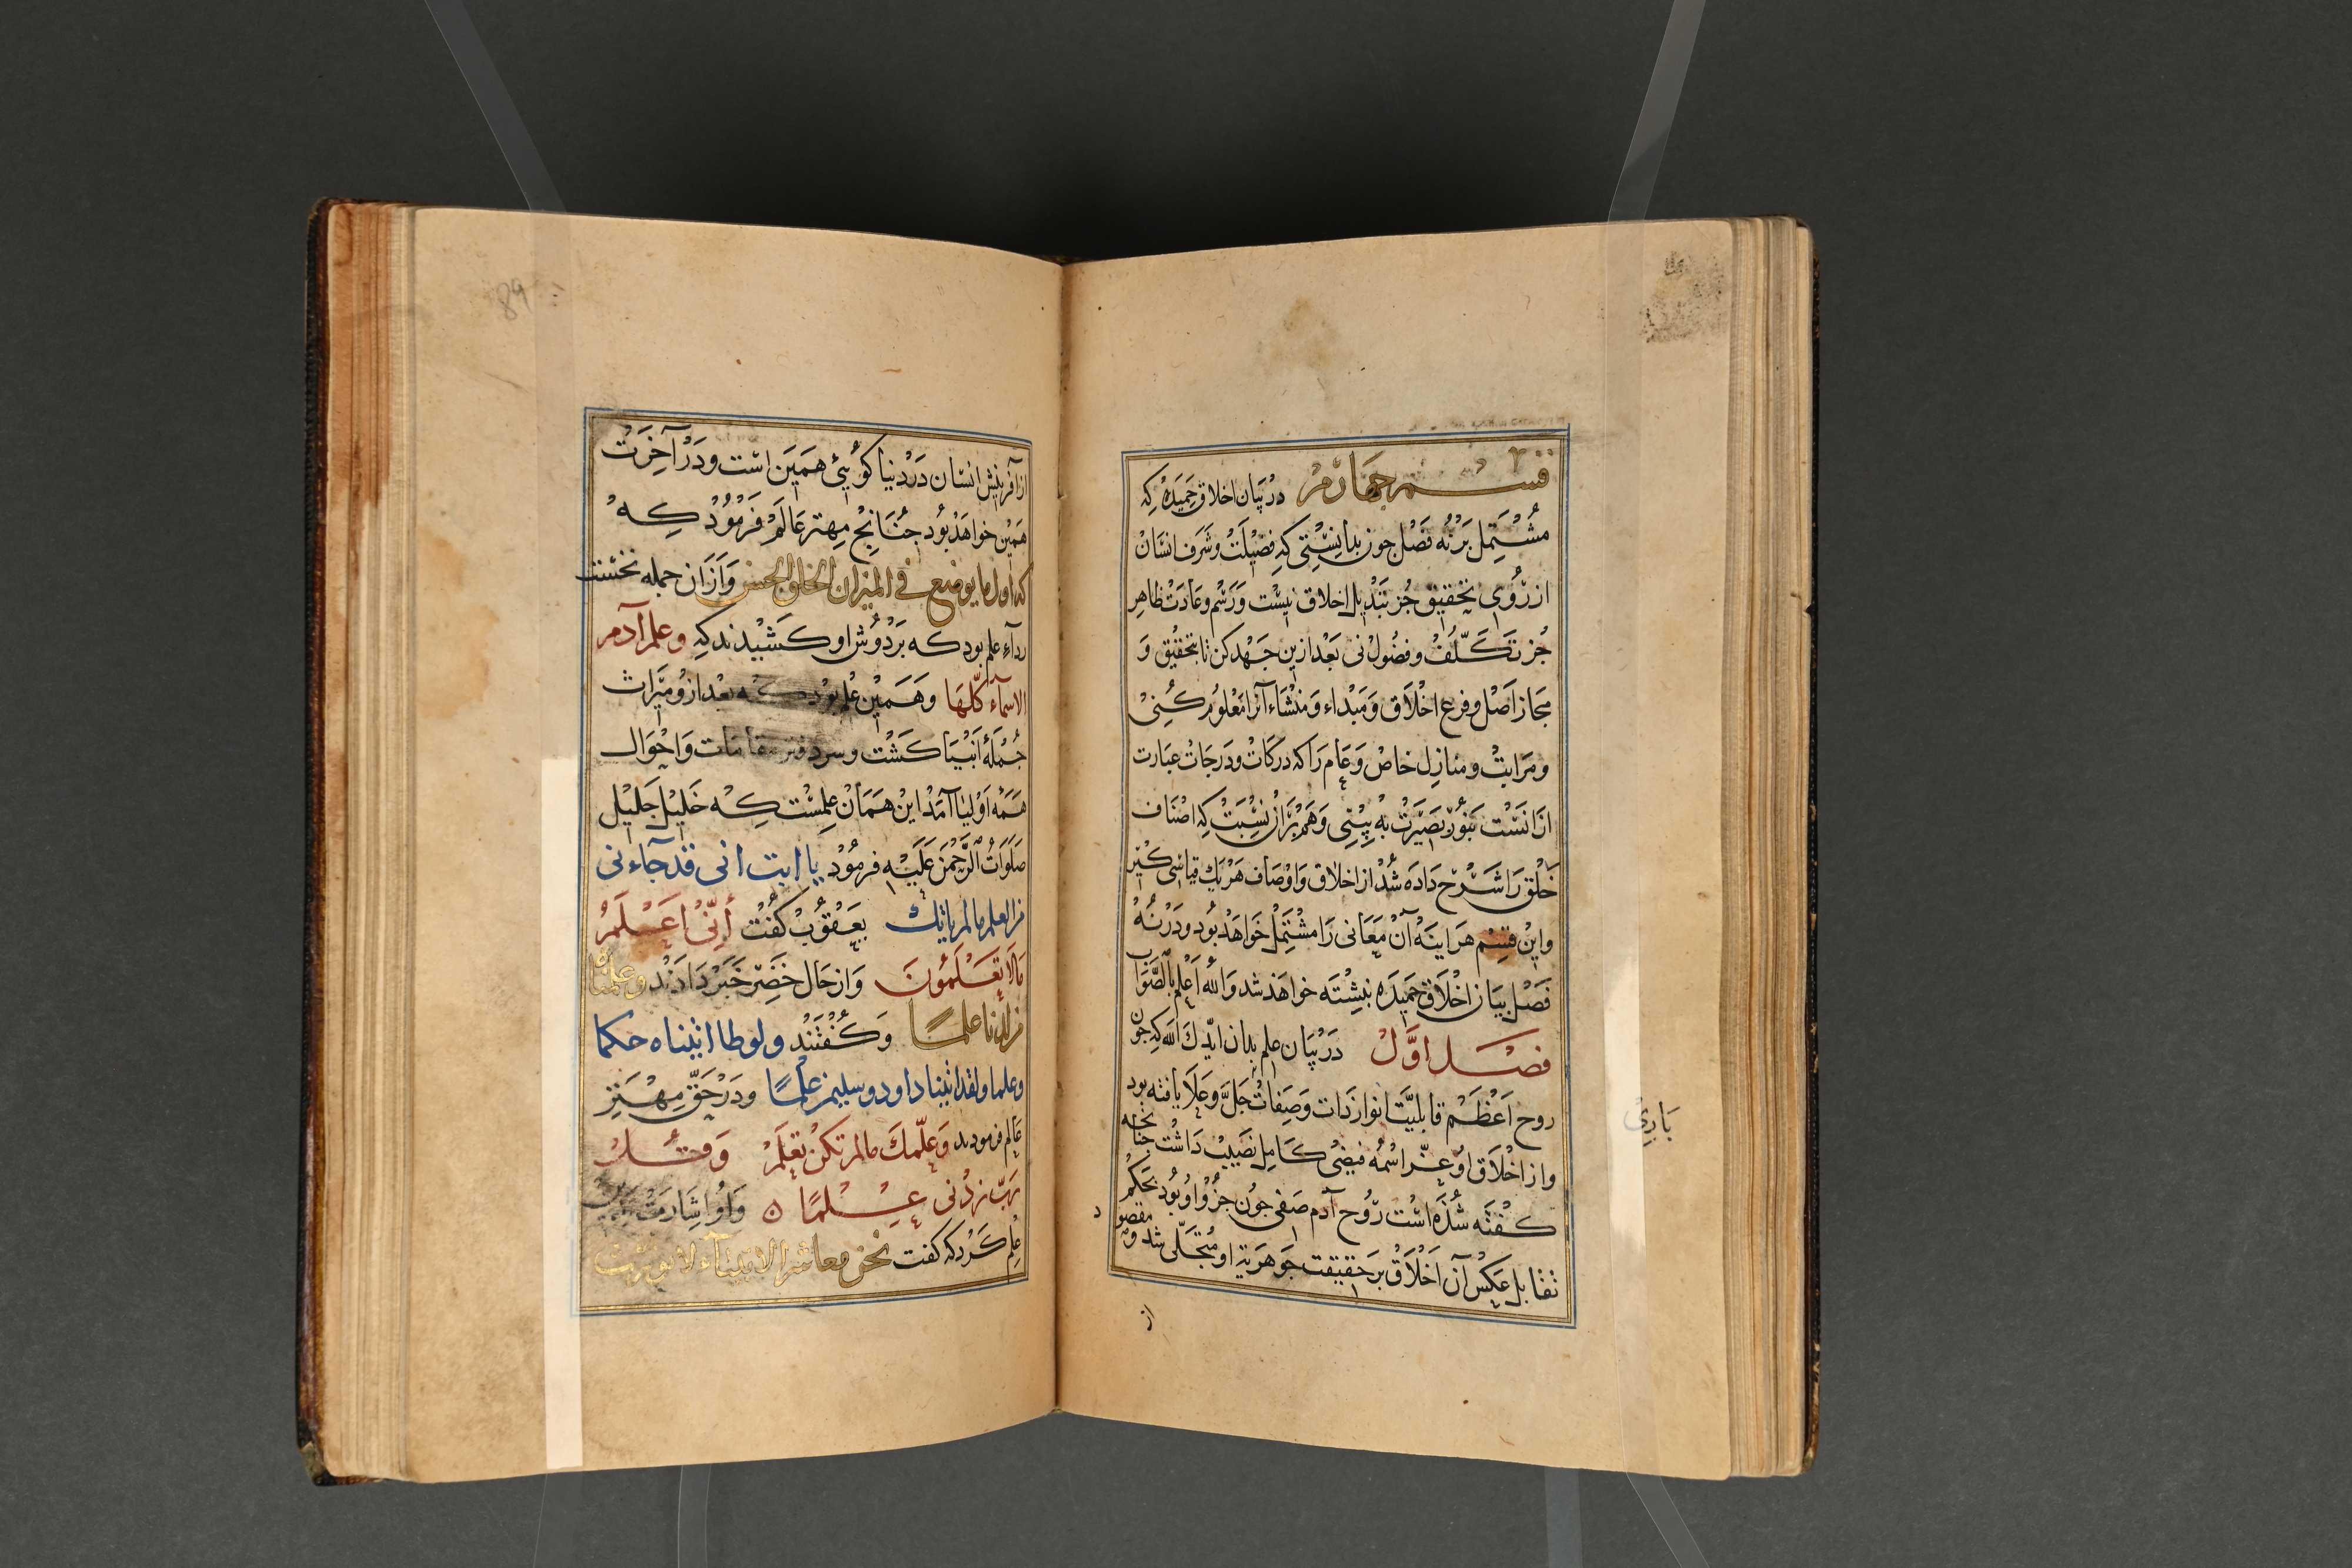 قسم جهارم در بیان اخلاق حمیده که
مشتمل بر نه فصل جون بدانستی که فضیلت و شرف انسان
از روی تحقیق جز تبدیل اخلاق نیست و رسم و عادت ظاهر
جز تکلف و فضول نی بعد ازین جهد کن تا بتحقیق و
مجاز اصل و فرع اخلاق و مبداء و منشاء آنرا معلوم کنی
و مراتب و منازل خاص و عام را که درکات و درجات عبارت
ازانست بنور بصیرت به بینی و هم بران نسبت که اصناف
خلق را شرح داده شد از اخلاق و اوصاف هر یک قیاسی کنی
و این قسم هراینه آن معانی را مشتمل خواهد بود و در نه
فصل بیان اخلاق حمیده نبشته خواهد شد والله اعلم بالصواب
فصل اول در بیان علم بدان ایدک الله که جون
روح اعظم قابلیت انوار ذات و صفات جل و علا یافته بود
و از اخلاق او عز اسمه فیضی کامل نصیب داشت جنانجه
کفته شذه است روح آدم صفی جون جزو او بود بحکم
تقابل عکس آن اخلاق بر حقیقت جوهریة او متجلی شد و مقصود
از
باری
89
از آفرینش انسان در دنیا کوئیی همین است و در آخرت
همین خواهد بود جنانج مهتر عالم فرمود که
که اول ما یوضع فی المیزان الخلق الحسن و ازان جمله نخست
رداء علم بود که بر دوش او کشیدند که و علم آدم
الاسماء کلها و همین علم بود که بعد ازو میراث
جملهٔ انبیا کشت و سر دفتر مقامات و احوال
همه اولیا آمد این همان علمست که خلیل جلیل
صلوات الرحمن علیه فرمود یا ابت انی قد جاءنی
من العلم مالم یاتک یعقوب کفت أنی اعلم
مالا تعلمون و از حال خضر خبر دادند و علمناه
من لدنا علما و کفتند و لوطا اتیناه حکما
و علما و لقد اتینا داود و سلیمن علما و در حق مهتر
عالم فرمودند و علمک مالم تکن تعلم و قل
رب زدنی علما و او اشارت
علم کرد که کفت نحن معاشر الانبیاء لا نورث